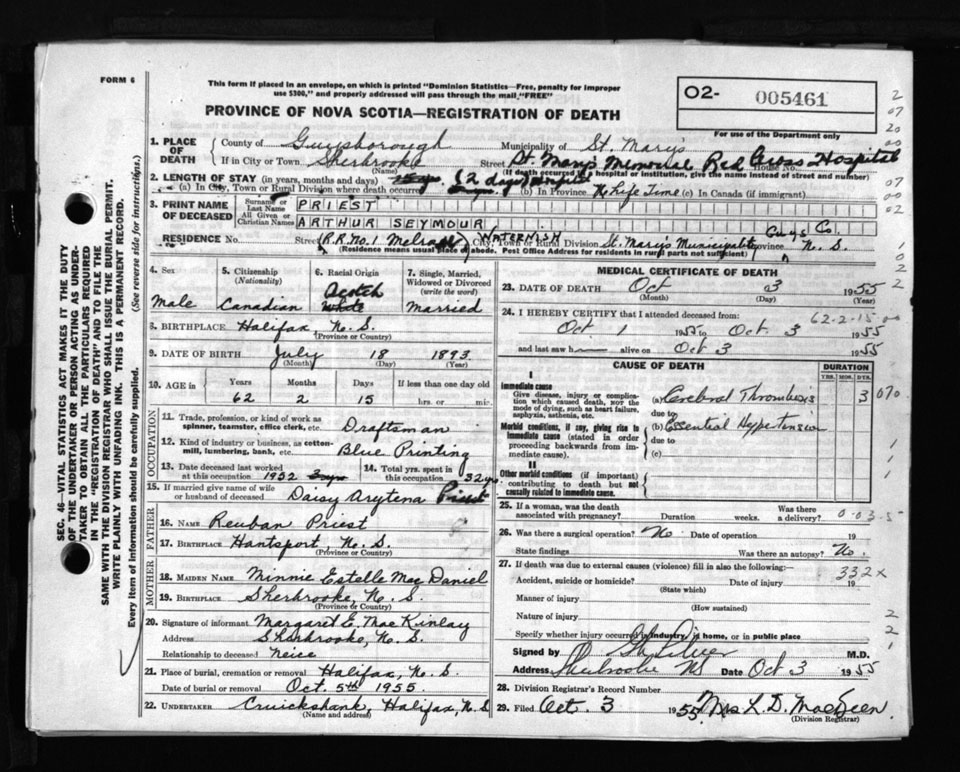 FORM 6
This form if placed in an envelope, on which is printed "Dominion Statistics—Free, penalty for improper
use $300," and properly addressed will pass through the mail "FREE"
PROVINCE OF NOVA SCOTIA—REGISTRATION OF DEATH
O2- 005461
For use of the Department only
1. PLACE OF DEATH
County of Guysborough Municipality of St. Mary's
If in City or Town Sherbrooke Street St. Mary's Memorial Red Cross Hospital House No.
(Name) (If death occurred in a hospital or institution, give the name instead of street and number)
2. LENGTH OF STAY (in years, months and days)
(a) In City, Town or Rural Division where death occurred 2 days (b) In Province Life Time (c) In Canada (if immigrant)
3. PRINT NAME OF DECEASED
Surname or Last Name PRIEST
All Given or Christian Names ARTHUR SEYMOUR
Guys Co.
RESIDENCE No. Street (R.R. No. 1 Melrose) WATERNISH City, Town or Rural Division St. Mary's Municipality Province N. S.
(Residence means usual place of abode. Post Office Address for residents in rural parts not sufficient)
4. Sex
Male
5. Citizenship
(Nationality)
Canadian
6. Racial Origin
Scotch
White
7. Single, Married, Widowed or Divorced
(write the word)
Married
8. BIRTHPLACE Halifax, N. S.
(Province or Country)
9. DATE OF BIRTH July 18 1893
(Month) (Day) (Year)
10. AGE in Years Months Days If less than one day old
62 2 15 hrs. or min.
OCCUPATION
11. Trade, profession, or kind of work as
spinner, teamster, office clerk, etc. Draftsman
12. Kind of industry or business, as cotton-
mill, lumbering, bank, etc. Blue Printing
13. Date deceased last worked
at this occupation 1952
14. Total yrs. spent in
this occupation 32 yrs
15. If married give name of wife
or husband of deceased Daisy Arytena Priest
FATHER
16. NAME Reuban Priest
17. BIRTHPLACE Hantsport, N. S.
(Province or Country)
MOTHER
18. MAIDEN NAME Minnie Estelle MacDaniel
19. BIRTHPLACE Sherbrooke, N. S.
(Province or Country)
20. Signature of informant Margaret E. MacKinlay
Address Sherbrooke, N. S.
Relationship to deceased Neice
21. Place of burial, cremation or removal Halifax, N. S.
Date of burial or removal Oct. 5th 1955.
22. UNDERTAKER Cruickshank, Halifax, N. S
(Name and address)
MEDICAL CERTIFICATE OF DEATH
23. DATE OF DEATH Oct 3 1955
(Month) (Day) (Year)
24. I HEREBY CERTIFY that I attended deceased from: 62-2-15
Oct 1 1955 to Oct. 3 1955
and last saw h alive on Oct 3 1955
CAUSE OF DEATH
DURATION
YRS. MOS. DYS.
I
Immediate cause
Give disease, injury or complication which caused death, not the mode of dying, such as heart failure, asphyxia, asthenia, etc.
(a) Cerebral Thrombosis 3 070
due to
Morbid conditions, if any, giving rise to immediate cause (stated in order proceeding backwards from immediate cause).
(b) Essential Hypertension
due to
(c)
II
Other morbid conditions (if important) contributing to death but not causally related to immediate cause.
25. If a woman, was the death
associated with pregnancy? Duration weeks. Was there a delivery? 0-03-5
26. Was there a surgical operation? No Date of operation 19
State findings Was there an autopsy? No.
27. If death was due to external causes (violence) fill in also the following: 332x
Accident, suicide or homicide? Date of injury 19
(State which)
Manner of injury
(How sustained)
Nature of injury
Specify whether injury occurred in industry, in home, or in public place
Signed by M.D.
Address Sherbrooke NS Date Oct 3 1955
28. Division Registrar's Record Number
29. Filed Oct. 3 1955 Mrs L. D. MacKeen
(Division Registrar)
SEC. 46—VITAL STATISTICS ACT MAKES IT THE DUTY
OF THE UNDERTAKER OR PERSON ACTING AS UNDER-
TAKER TO OBTAIN ALL THE PARTICULARS REQUIRED
IN THE "REGISTRATION OF DEATH" AND TO FILE THE
SAME WITH THE DIVISION REGISTRAR WHO SHALL ISSUE THE BURIAL PERMIT.
WRITE PLAINLY WITH UNFADING INK. THIS IS A PERMANENT RECORD.
Every item of information should be carefully supplied. (See reverse side for instructions.)